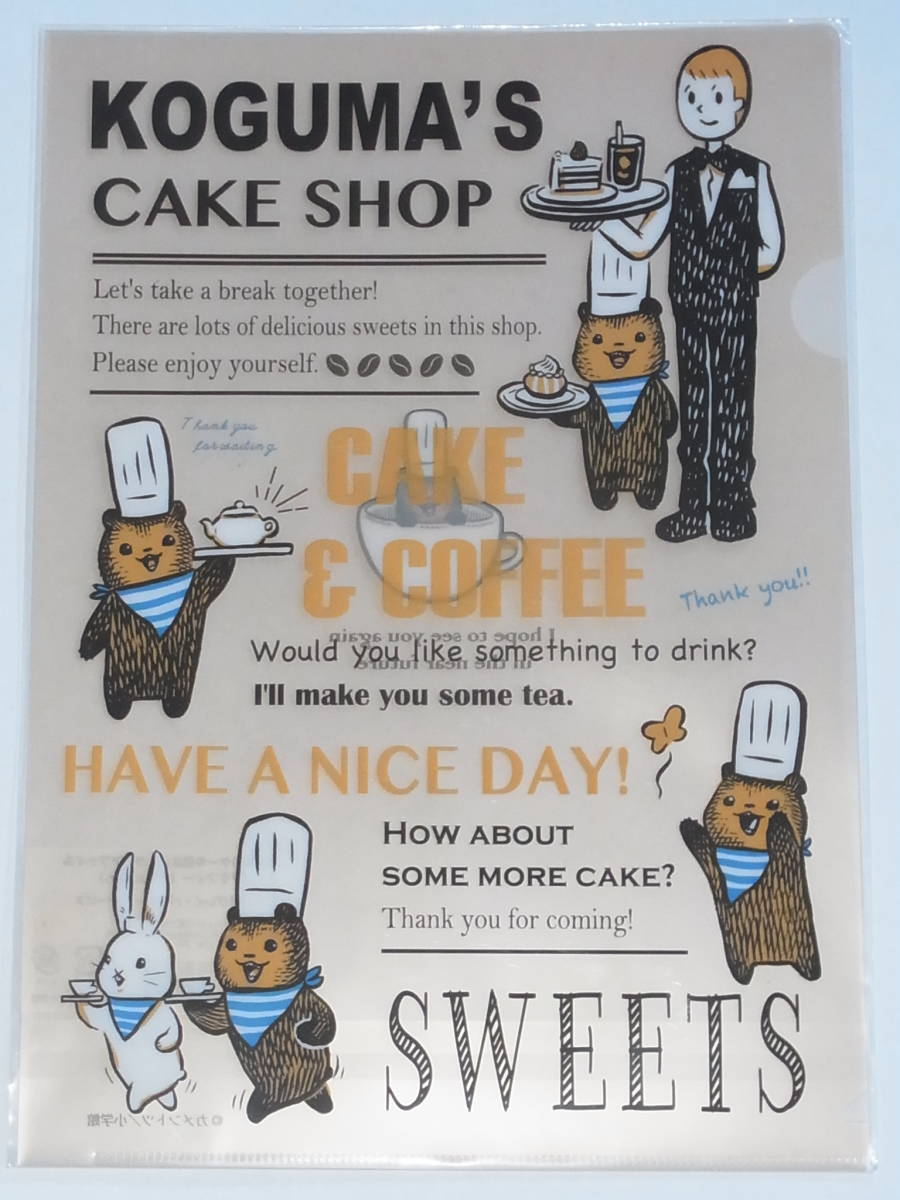 KOGUMA'S
CAKE SHOP
Let's take a break together!
There are lots of delicious sweets in this shop.
Please enjoy yourself.
Thank you
for waiting
CAKE
& COFFEE
Thank you!!
I hope to see you again
in the near future
Would you like something to drink?
I'll make you some tea.
HAVE A NICE DAY!
HOW ABOUT
SOME MORE CAKE?
Thank you for coming!
SWEETS
©カメントツ/小学館